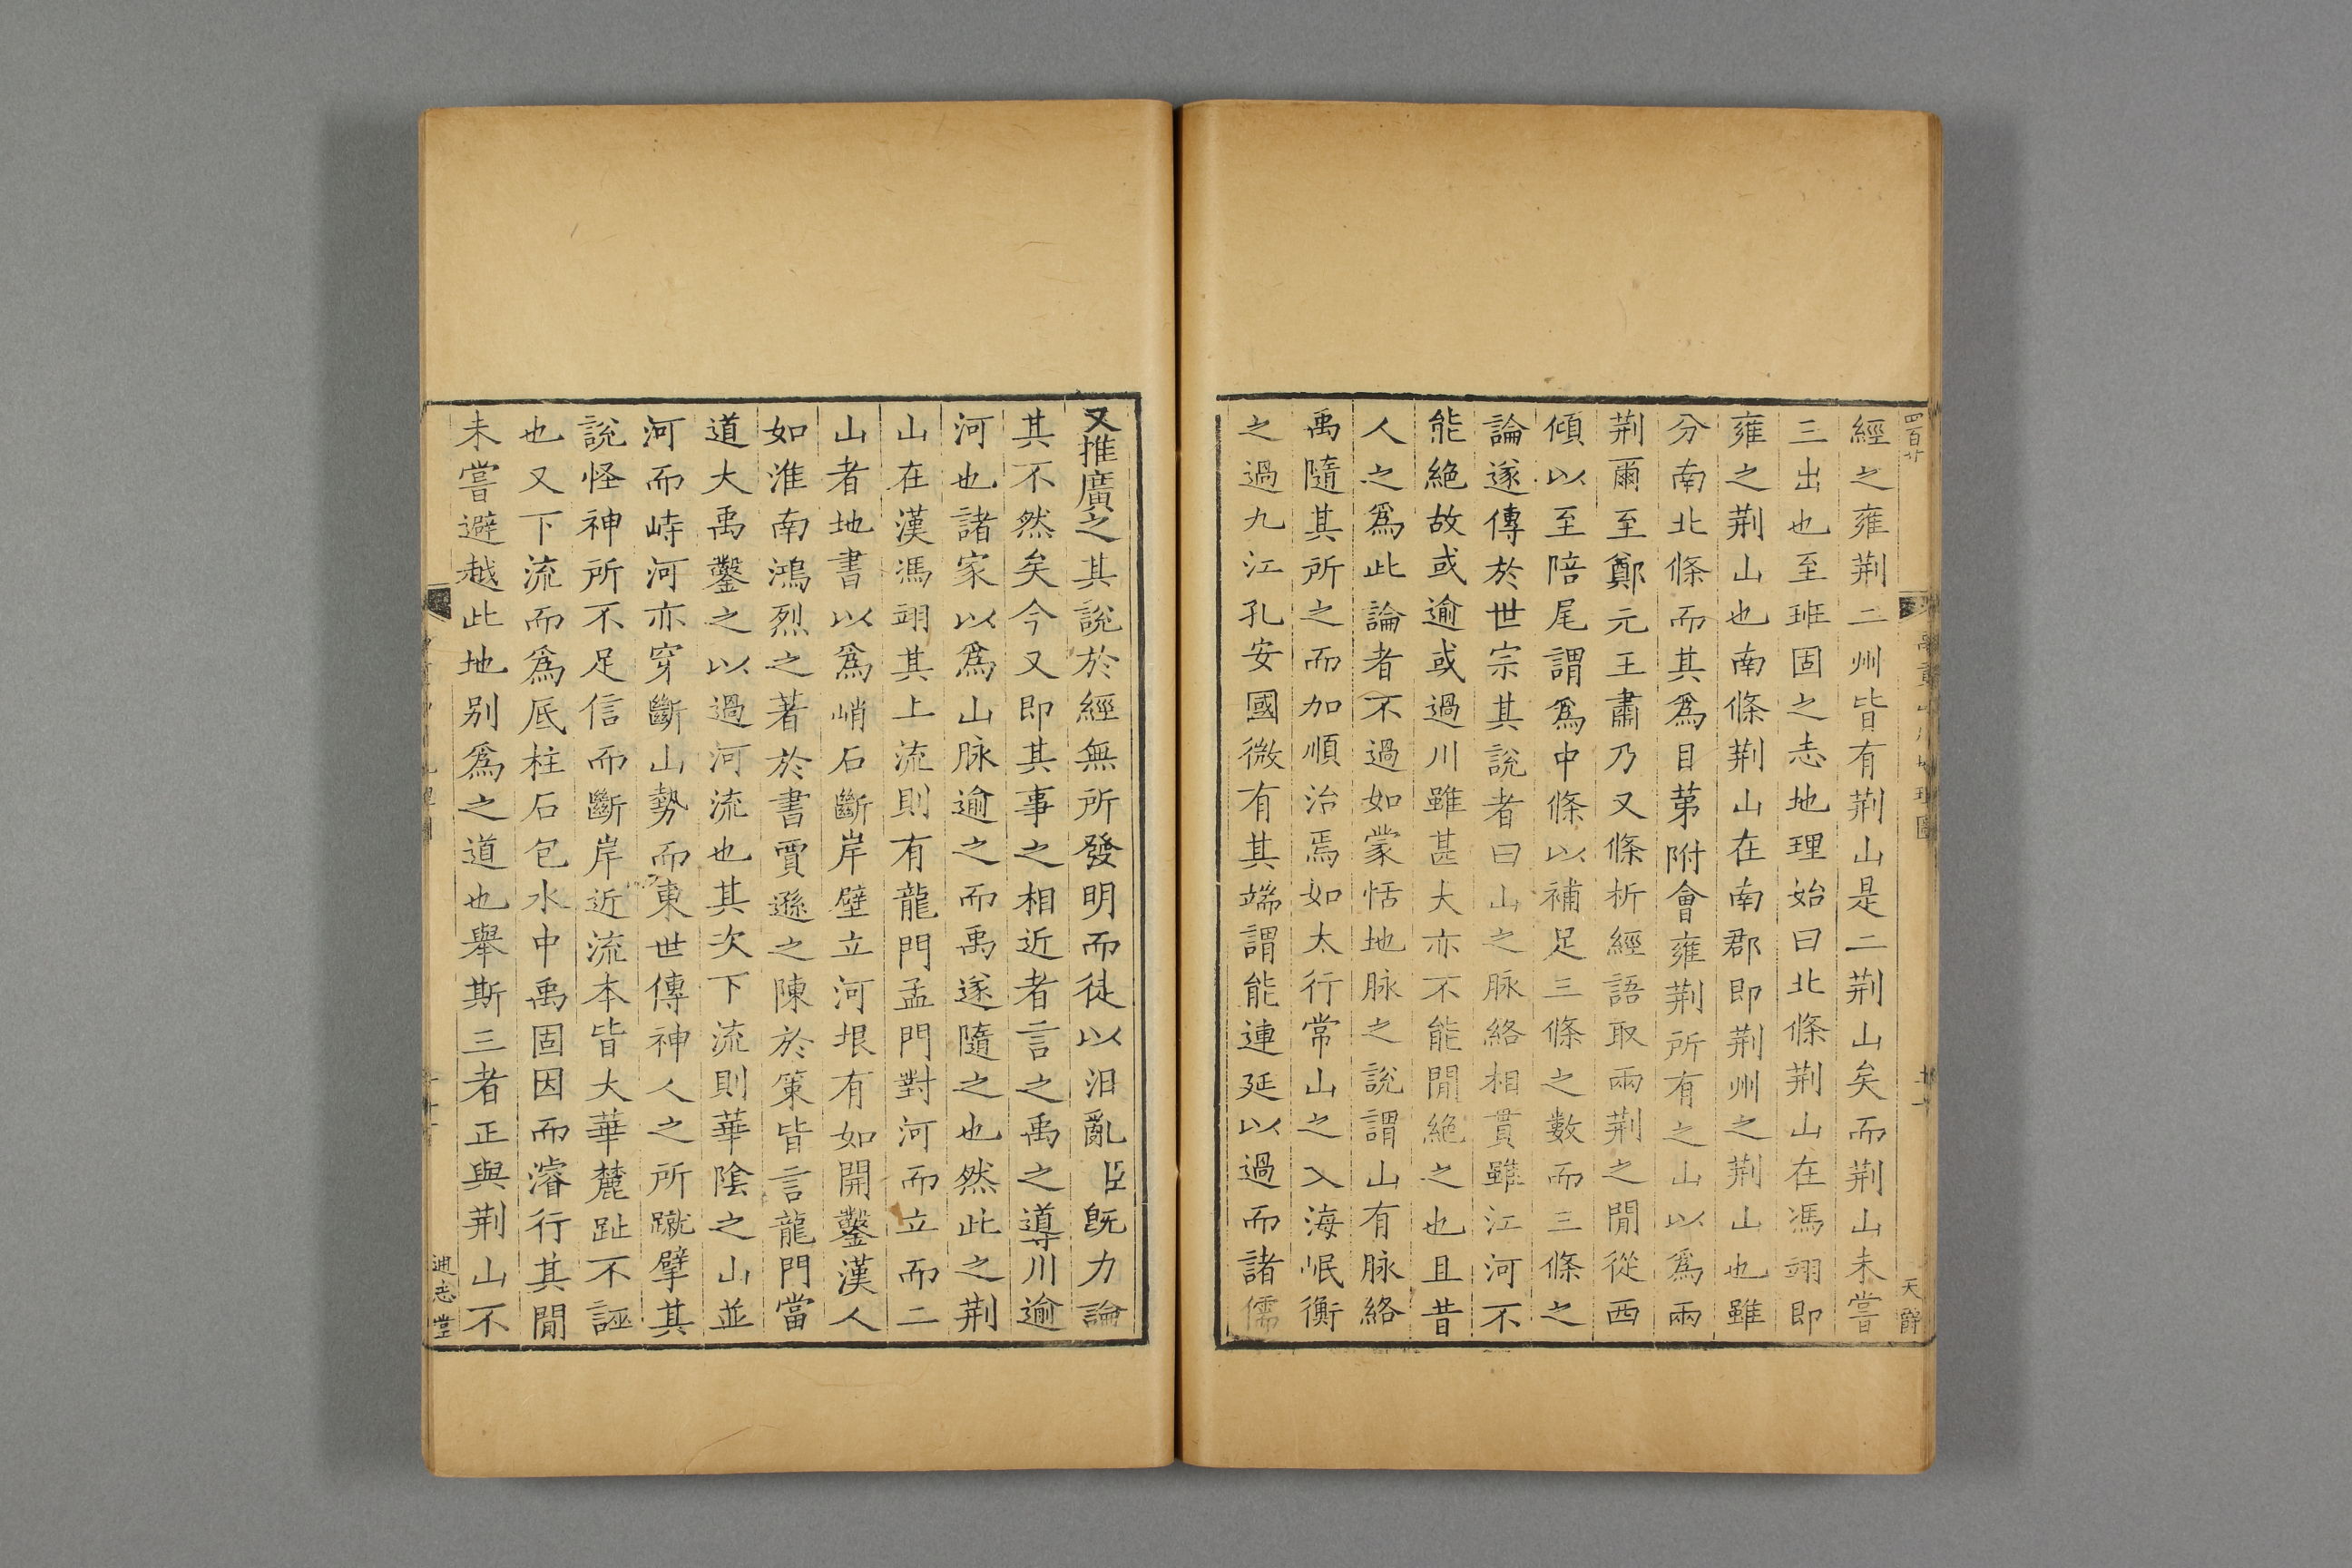 四百廿
經之雍荆二州皆有荆山是二荆山矣而荆山未嘗
三出也至班固之志地理始曰北條荆山在馮翊即
雍之荆山也南條荆山在南郡即荆州之荆山也雖
分南北條而其爲目苐附會雍荆所有之山以爲兩
荆爾至鄭元王肅乃又條析經語取兩荆之閒從西
傾以至陪尾謂爲中條以補足三條之數而三條之
論遂傳於世宗其說者曰山之脉絡相貫雖江河不
能絕故或逾或過川雖甚大亦不能閒絕之也且昔
人之爲此論者不過如蒙恬地脉之說謂山有脉絡
禹隨其所之而加順治焉如太行常山之入海岷衡
之過九江孔安國微有其端謂能連延以過而諸儒
又推廣之其說於經無所發明而徒以汨亂臣旣力論
其不然矣今又即其事之相近者言之禹之導川逾
河也諸家以爲山脉逾之而禹遂隨之也然此之荆
山在漢馮翊其上流則有龍門孟門對河而立而二
山者地書以爲峭石斷岸壁立河垠有如開鑿漢人
如淮南鴻烈之著於書賈遜之陳於策皆言龍門當
道大禹鑿之以過河流也其次下流則華陰之山並
河而峙河亦穿斷山勢而東世傳神人之所蹴擘其
說怪神所不足信而斷岸近流本皆大華麓趾不誣
也又下流而爲底柱石包水中禹固因而濬行其閒
未嘗避越此地别爲之道也舉斯三者正與荆山不
通志堂